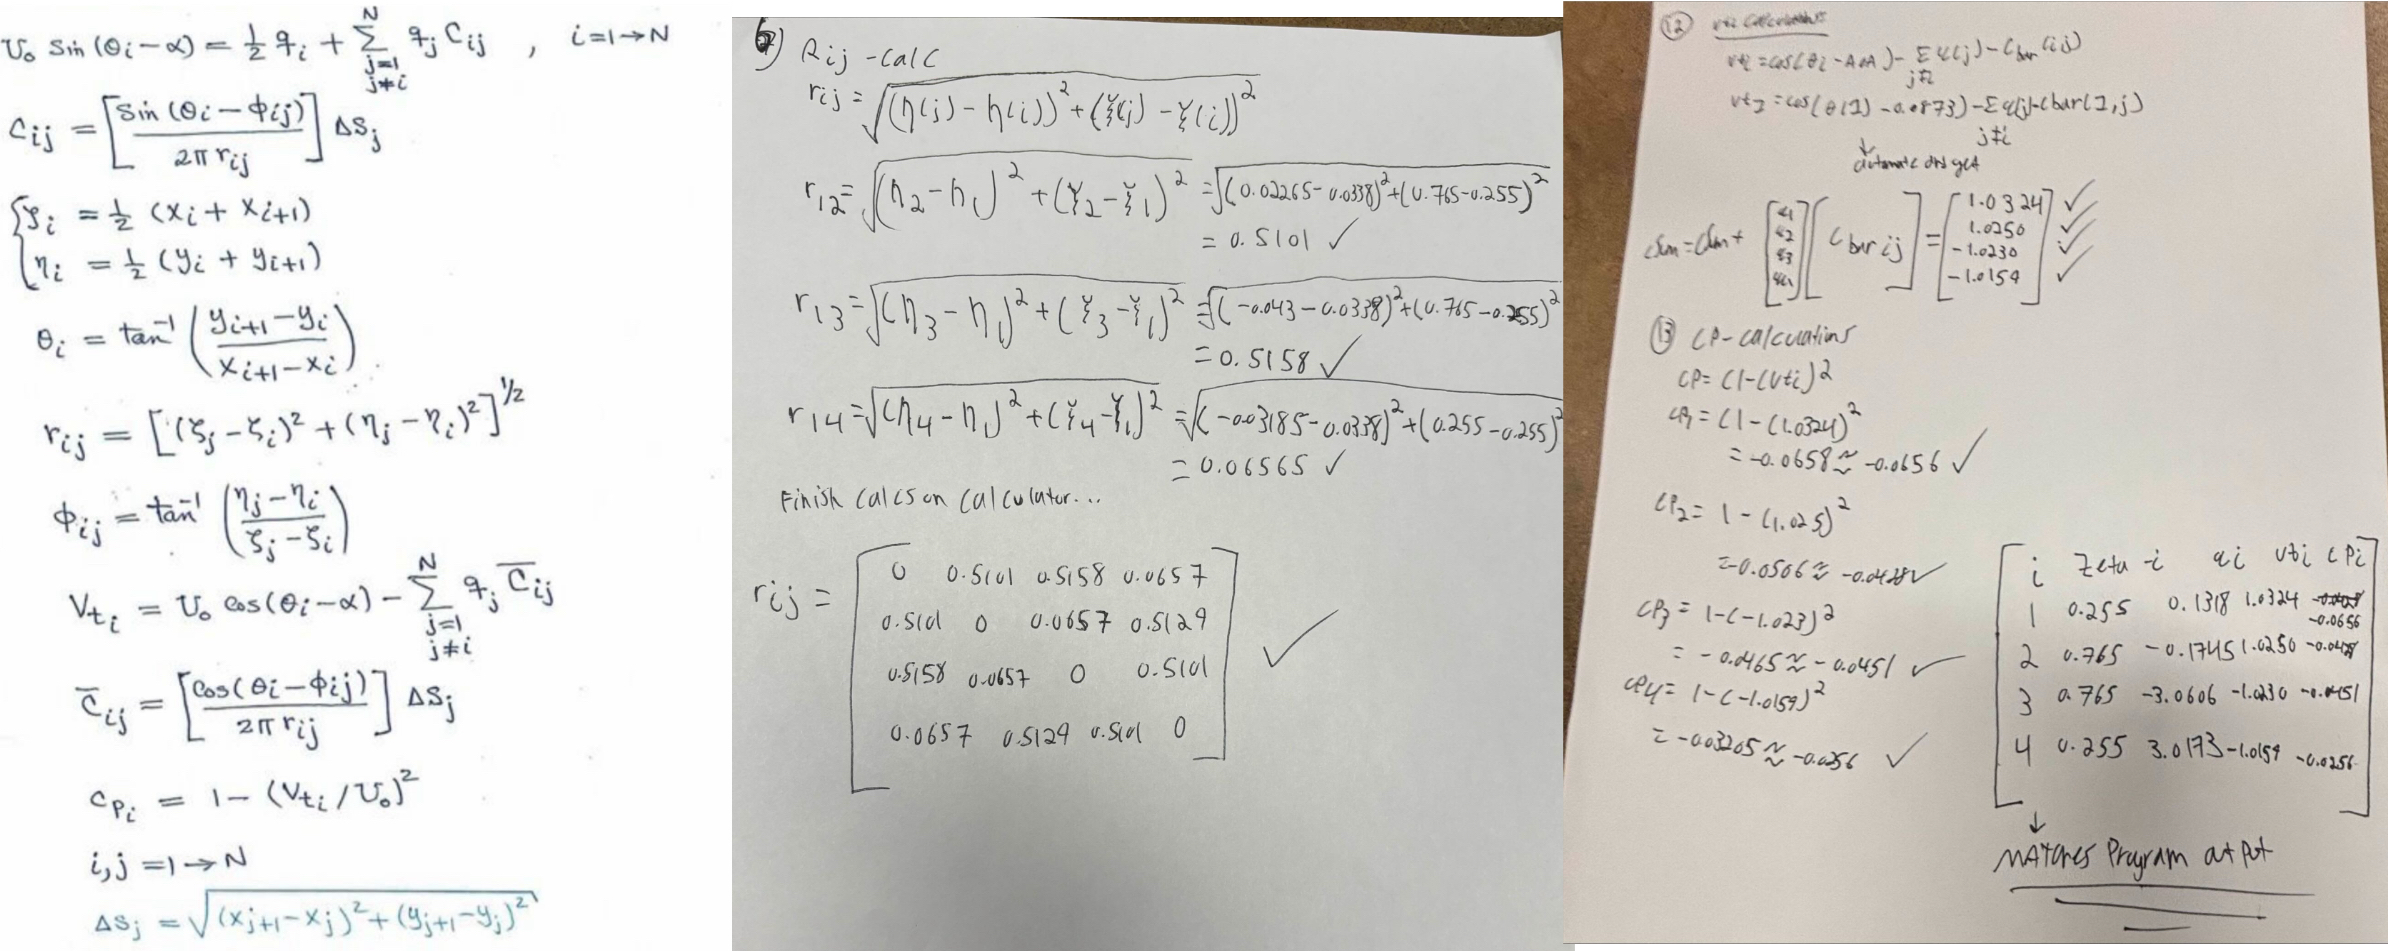 U₀ Sin (θi − α) = ½ qi + Σ(j=1, j≠i → N) qj Cij , i=1→N
Cij = [Sin (θi − φij) / 2π rij] ΔSj
ζi = ½ (xi + xi+1)
ηi = ½ (yi + yi+1)
θi = tan⁻¹ ((yi+1 − yi) / (xi+1 − xi))
rij = [(ζj − ζi)² + (ηj − ηi)²]^1/2
φij = tan⁻¹ ((ηj − ηi) / (ζj − ζi))
Vti = U₀ cos(θi − α) − Σ(j=1, j≠i → N) qj C̄ij
C̄ij = [cos(θi − φij) / 2π rij] ΔSj
CPi = 1 − (Vti / U₀)²
i,j = 1→N
ΔSj = √((xj+1 − xj)² + (yj+1 − yj)²)
6) Rij - calc
rij = √((η(j) − η(i))² + (ξ(j) − ξ(i))²
r12 = √((η2 − η1)² + (ξ2 − ξ1)² = √(0.02265 − 0.0338)² + (0.765 − 0.255)²
= 0.5101 ✓
r13 = √(η3 − η1)² + (ξ3 − ξ1)² = √(−0.043 − 0.0338)² + (0.765 − 0.255)²
= 0.5158 ✓
r14 = √(η4 − η1)² + (ξ4 − ξ1)² = √(−0.03185 − 0.0338)² + (0.255 − 0.255)²
= 0.06565 ✓
Finish calcs on calculator...
rij =
0 0.5101 0.5158 0.0657
0.5101 0 0.0657 0.5129
0.5158 0.0657 0 0.5101
0.0657 0.5129 0.5101 0
✓
12) vti calculations
vti = cos(θi − AoA) − Σ(j≠i) q(j) − Cbar(i,j)
vt1 = cos(θ(1) − 0.0873) − Σ(j≠i) q(j) − Cbar(1,j)
↓
csum = csum + [q1 q2 q3 q4] [Cbar ij] =
1.0324 ✓
1.0250 ✓
−1.0230 ✓
−1.0159 ✓
13) CP - calculations
CP = (1 − (Vti)²
CP1 = (1 − (1.0324)²
= −0.0658 ≈ −0.0656 ✓
CP2 = 1 − (1.025)²
= −0.0506 ≈ −0.0428 ✓
CP3 = 1 − (−1.023)²
= −0.0465 ≈ −0.0451 ✓
CP4 = 1 − (−1.0159)²
= −0.03205 ≈ −0.0256 ✓
i Zeta-i qi vti CPi
1 0.255 0.1318 1.0324 −0.0656
2 0.765 −0.1745 1.0250 −0.0428
3 0.765 −3.0606 −1.0230 −0.0451
4 0.255 3.0173 −1.0159 −0.0256
↓
MATCHES Program output